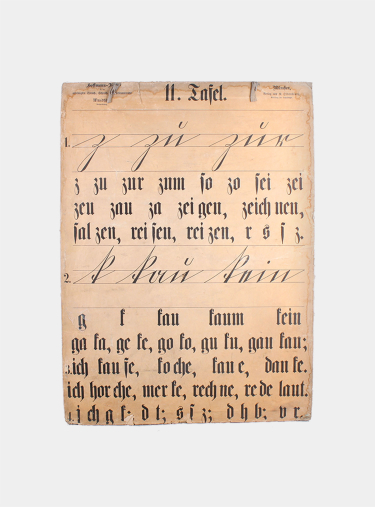 11. Tafel.
1. z zu zur
z zu zur zum so zo sei zei
zeu zau za zei gen, zeich nen,
sal zen, rei sen, rei zen, r s ſ z.
2. k kau kein
g k kau kaum kein
ga ka, ge ke, go ko, gu ku, gau kau;
3. ich kau fe, ko che, kau e, dan ke.
ich hor che, mer ke, rech ne, re de laut.
4. j ch g k; d t; s ſ z; d h b; v r.